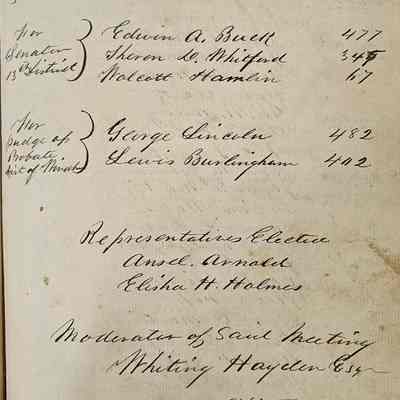 For Senator 13th District
Edwin A. Buck 477
Theron D. Whitford 345
Wolcott Hamlin 67
For Judge of Probate
Dist of Windh
George Lincoln 482
Lewis Burlingham 402
Representatives Elected
Ansel Arnold
Elisha H. Holmes
Moderator of Said Meeting
Whiting Hayden Esq